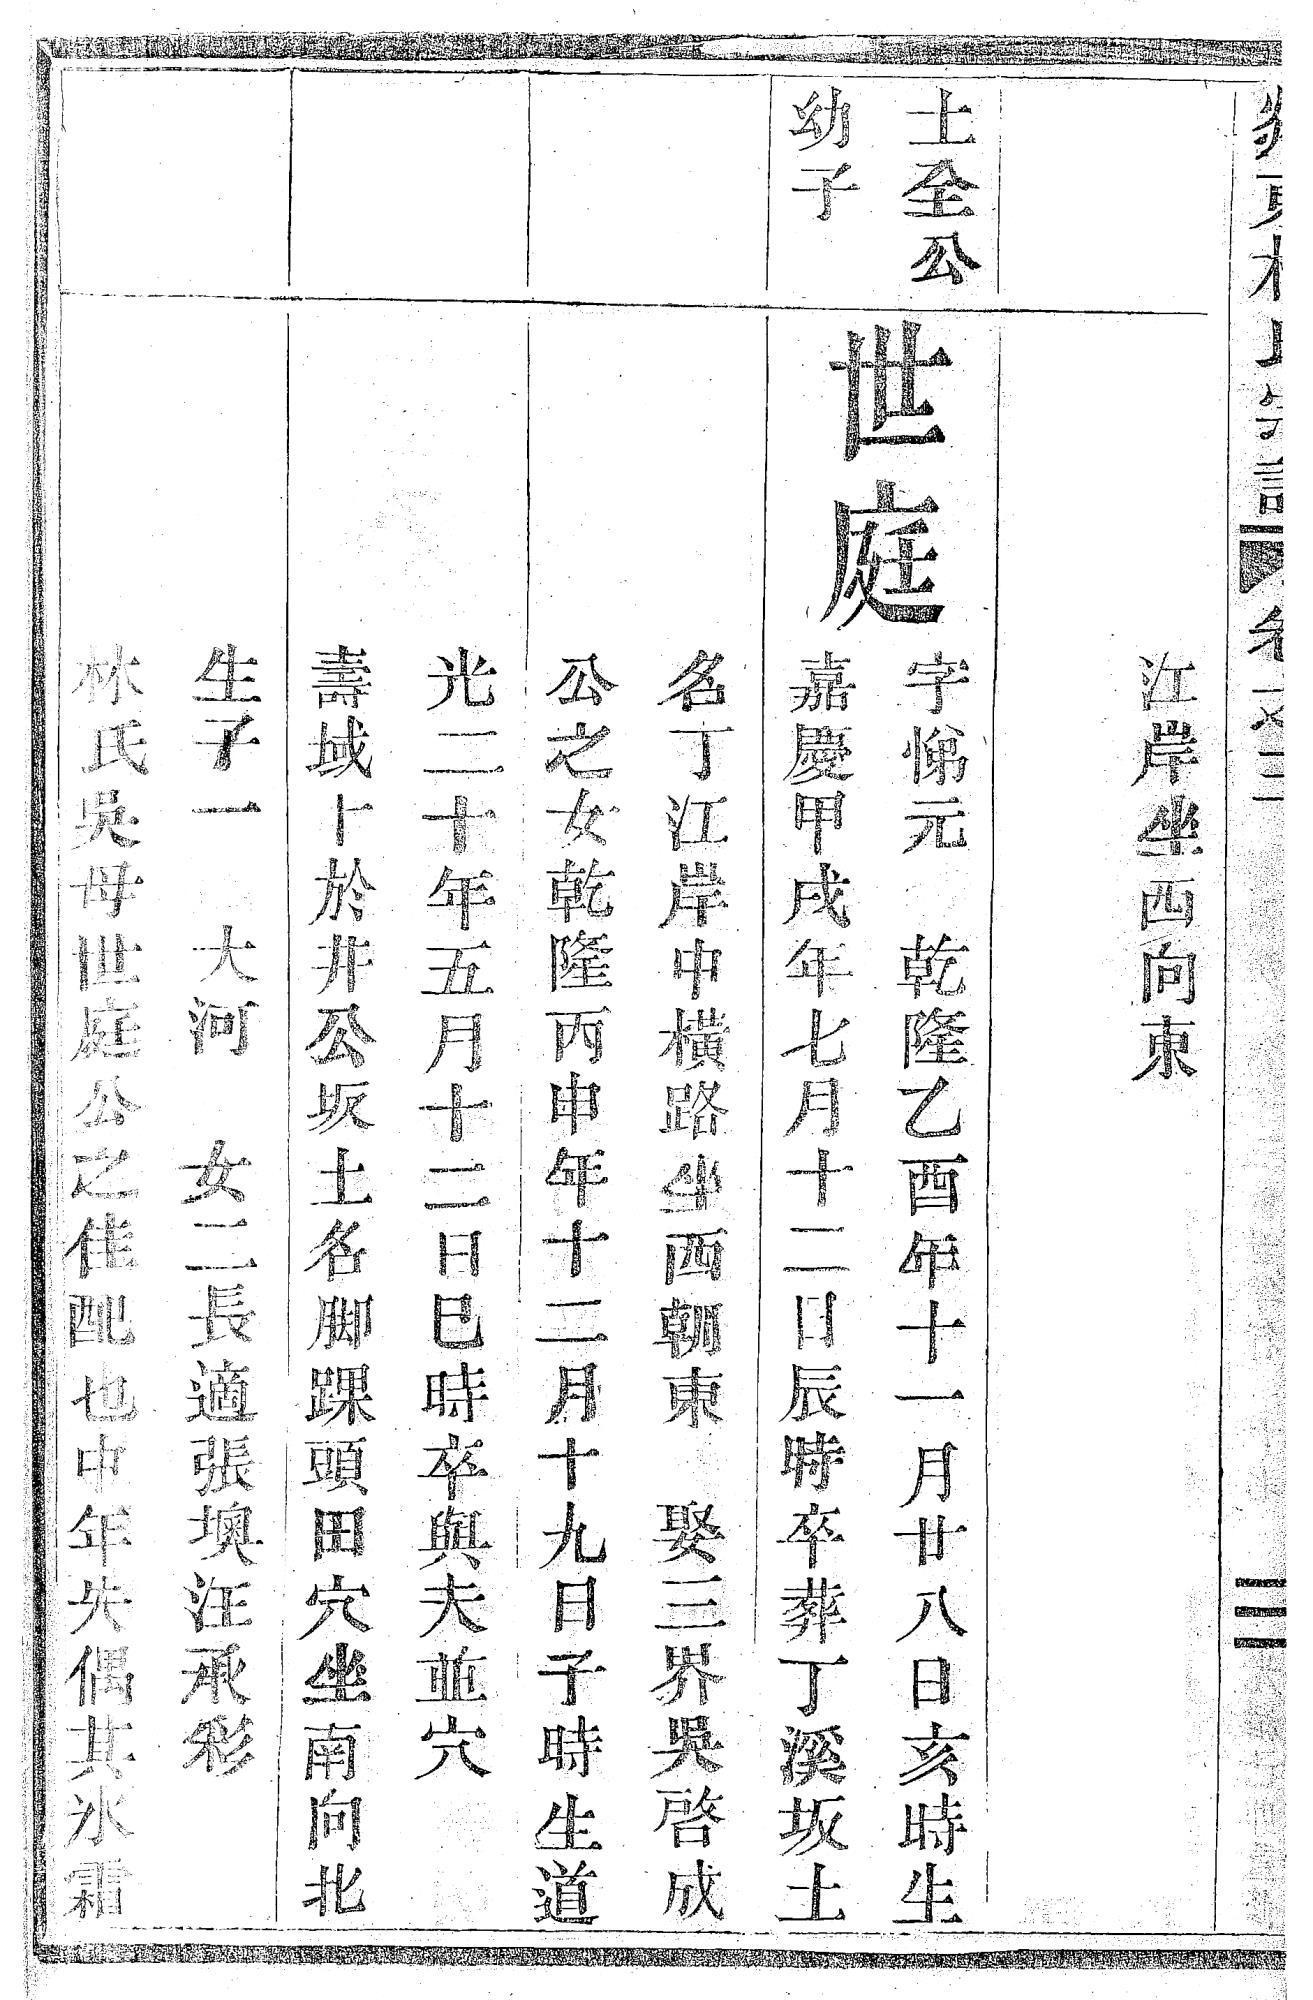 林氏宗譜 卷之二
江岸坐西向東
士全公
幼子
世庭
字悌元 乾隆乙酉年十一月廿八日亥時生
嘉慶甲戌年七月十二日辰時卒葬丁溪坂土
名丁江岸中橫路坐西朝東 娶三界吳啓成
公之女乾隆丙申年十二月十九日子時生道
光二十年五月十二日巳時卒與夫並穴
壽域卜於井公坂土名脚踝頭田穴坐南向北
生子一 大河 女二長適張墺汪承彩
林氏吳母世庭公之佳配也中年失偶其冰霜